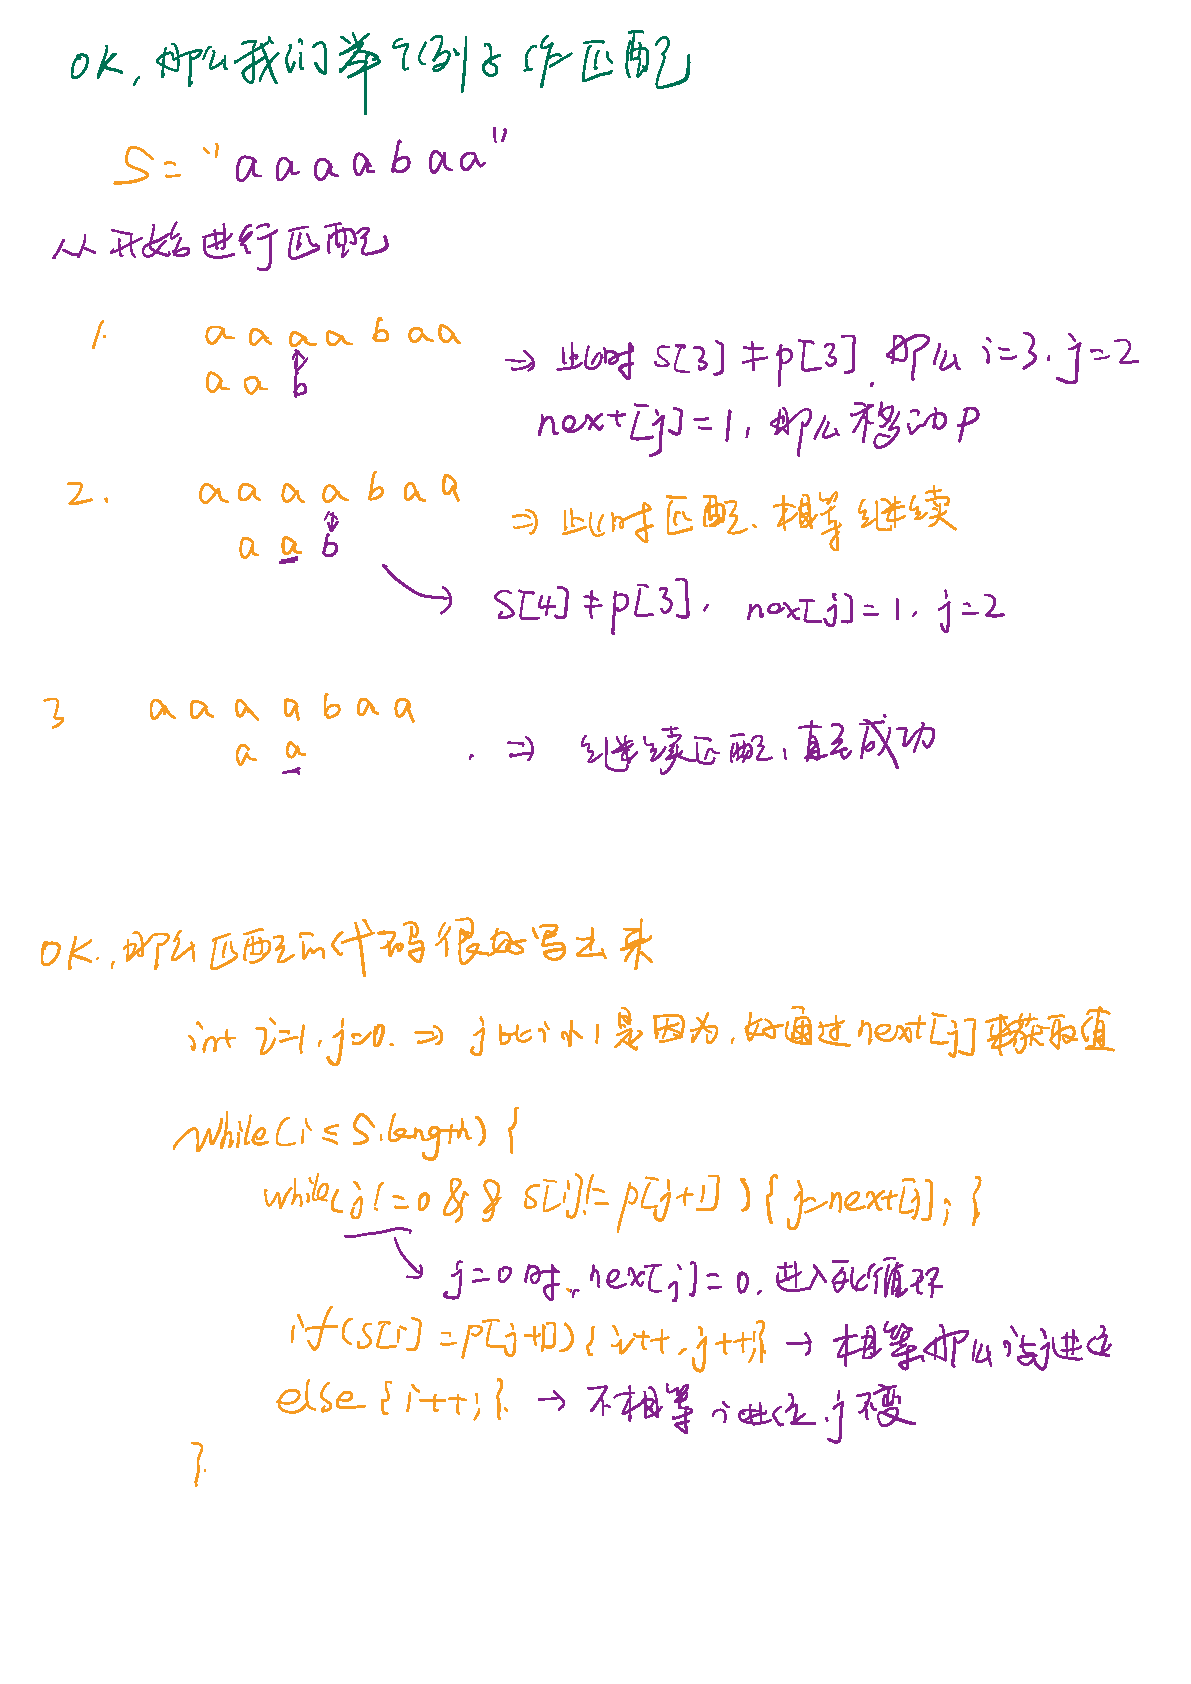 OK, 那么我们举个例子作匹配
S = "aaaabaa"
从开始进行匹配
1. a a a a b a a
a a b
⇒ 此时 s[3] ≠ p[3], 那么 i=3, j=2
next[j]=1, 那么移动P
2. a a a a b a a
a a b
⇒ 此时匹配、相等继续
→ S[4] ≠ p[3], nex[j]=1, j=2
3 a a a a b a a
a a
⇒ 继续匹配,直至成功
OK, 那么匹配的代码很好写出来
int i=1, j=0. ⇒ j比i小1是因为,好通过next[j]来获取值
while(i ≤ S.length) {
while(j!=0 && s[i]!=p[j+1]) { j=next[j]; }
→ j=0时, next[j]=0, 进入死循环
if(s[i]=p[j+1]) { i++, j++;} → 相等,那么i与j进位
else { i++; }. → 不相等 i进位,j不变
}.